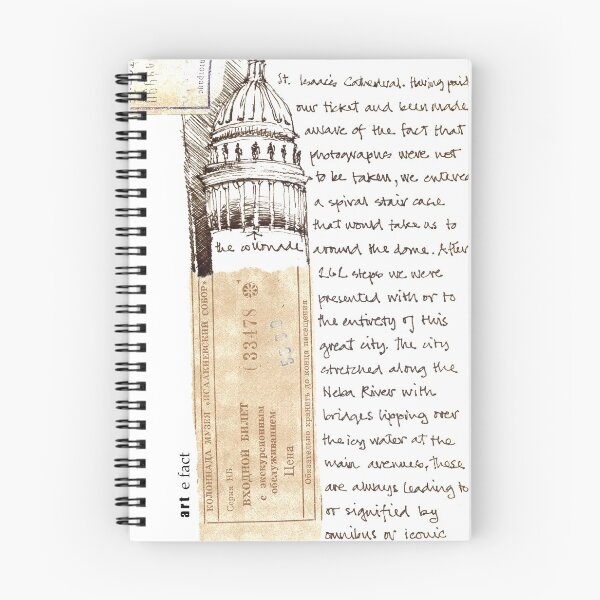 St. Isaac's Cathederal. Having paid
our ticket and been made
aware of the fact that
photographs were not
to be taken, we entered
a spiral stair case
that would take us to
around the dome. After
262 steps we were
presented with or to
the entirety of this
great city. The city
stretched along the
Neba River with
bridges lipping over
the icy water at the
main avenues, these
are always leading to
or signified by
omnibus or iconic
the colonnade
КОЛОННАДА МУЗЕЯ «ИСААКИЕВСКИЙ СОБОР»
Серия НБ
( 33478
ВХОДНОЙ БИЛЕТ
с экскурсионным
обслуживанием
Цена
Обязательно хранить до конца посещения
art e fact